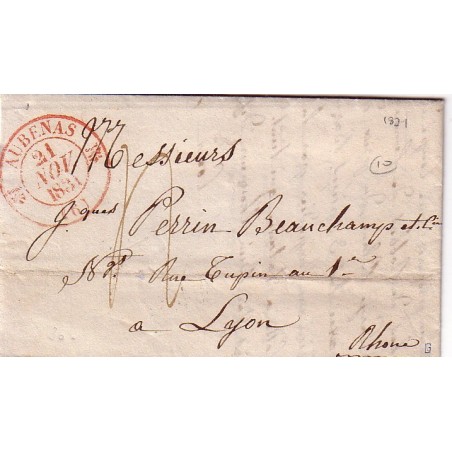 AUBENAS
21
NOV
1831
(6)
1831
10
Messieurs
Jques Perrin Beauchamps et Cie
Nd. Rue Tupin au 1er
a Lyon
Rhone